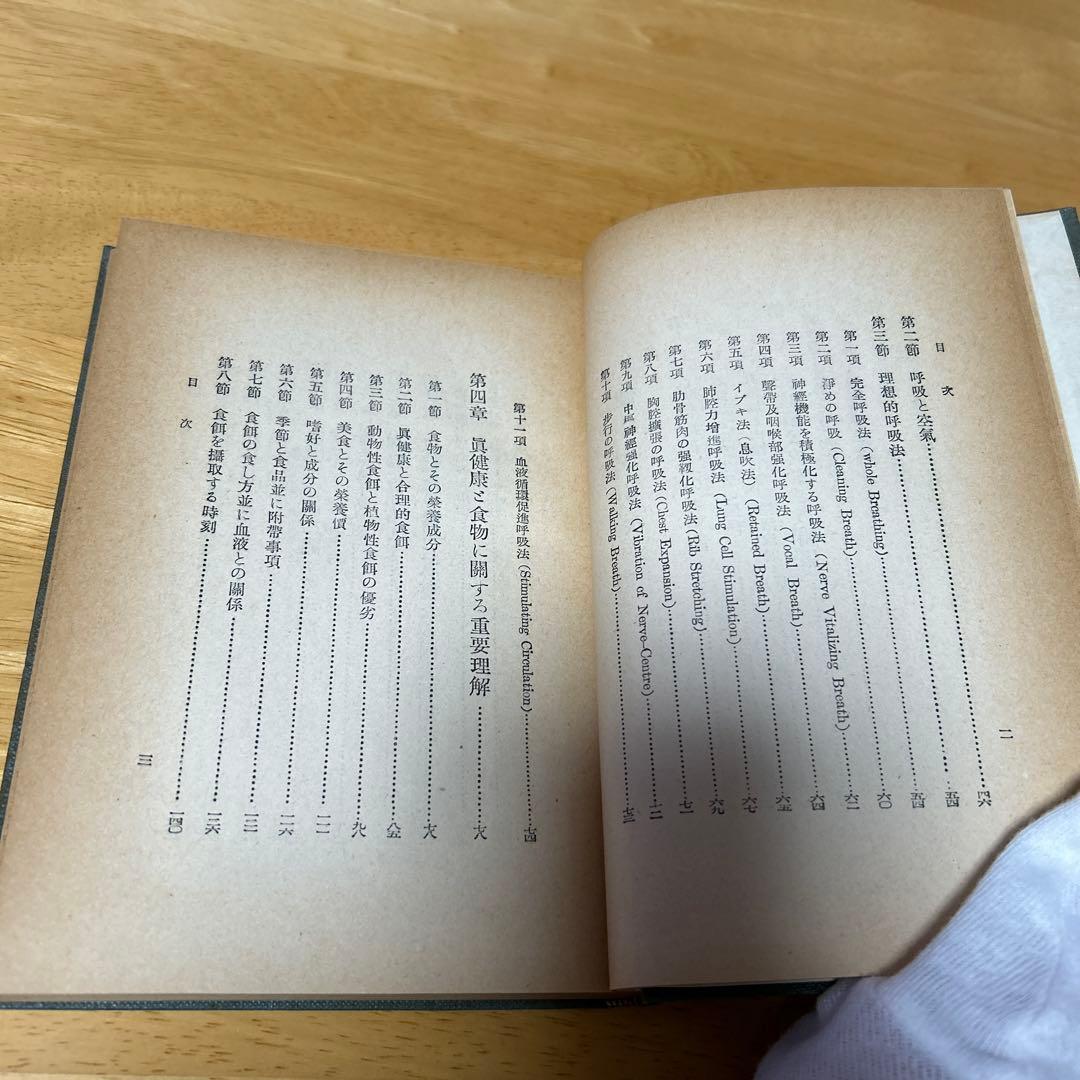 目次
第二節 呼吸と空氣……四六
第三節 理想的呼吸法……五四
第一項 完全呼吸法 (whole Breathing)……五四
第二項 淨めの呼吸 (Cleaning Breath)……六〇
第三項 神經機能を積極化する呼吸法 (Nerve Vitalizing Breath)……六二
第四項 聲帶及咽喉部强化呼吸法 (Vocal Breath)……六四
第五項 イブキ法(息吹法) (Retained Breath)……六五
第六項 肺腔力增進呼吸法 (Lung Cell Stimulation)……六七
第七項 肋骨筋肉の强靱化呼吸法 (Rib Stretching)……六九
第八項 胸腔擴張の呼吸法 (Chest Expansion)……七一
第九項 中樞神經强化呼吸法 (Vibration of Nerve-Centre)……七二
第十項 步行の呼吸法 (Walking Breath)……七三
二
第十一項 血液循環促進呼吸法 (Stimulating Circulation)……七四
第四章 眞健康と食物に關する重要理解……七八
第一節 食物とその榮養成分……七八
第二節 眞健康と合理的食餌……八五
第三節 動物性食餌と植物性食餌の優劣……九八
第四節 美食とその榮養價……一一一
第五節 嗜好と成分の關係……一二六
第六節 季節と食品並に附帶事項……一三一
第七節 食餌の食し方並に血液との關係……一三六
第八節 食餌を攝取する時刻……一四〇
目次
三